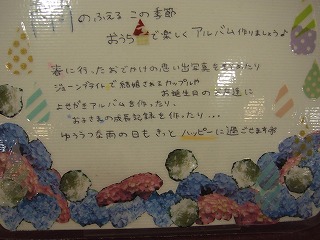 のふえる この季節
おうちで楽しく アルバム作りましょう♪
春に行ったおでかけの思い出写真を
ジューンブライドで結婚されるカップルや
お誕生日の
よせがきアルバムを作ったり、
お子さまの成長記録を作ったり...
ゆううつな雨の日も きっと ハッピーに過ごせます